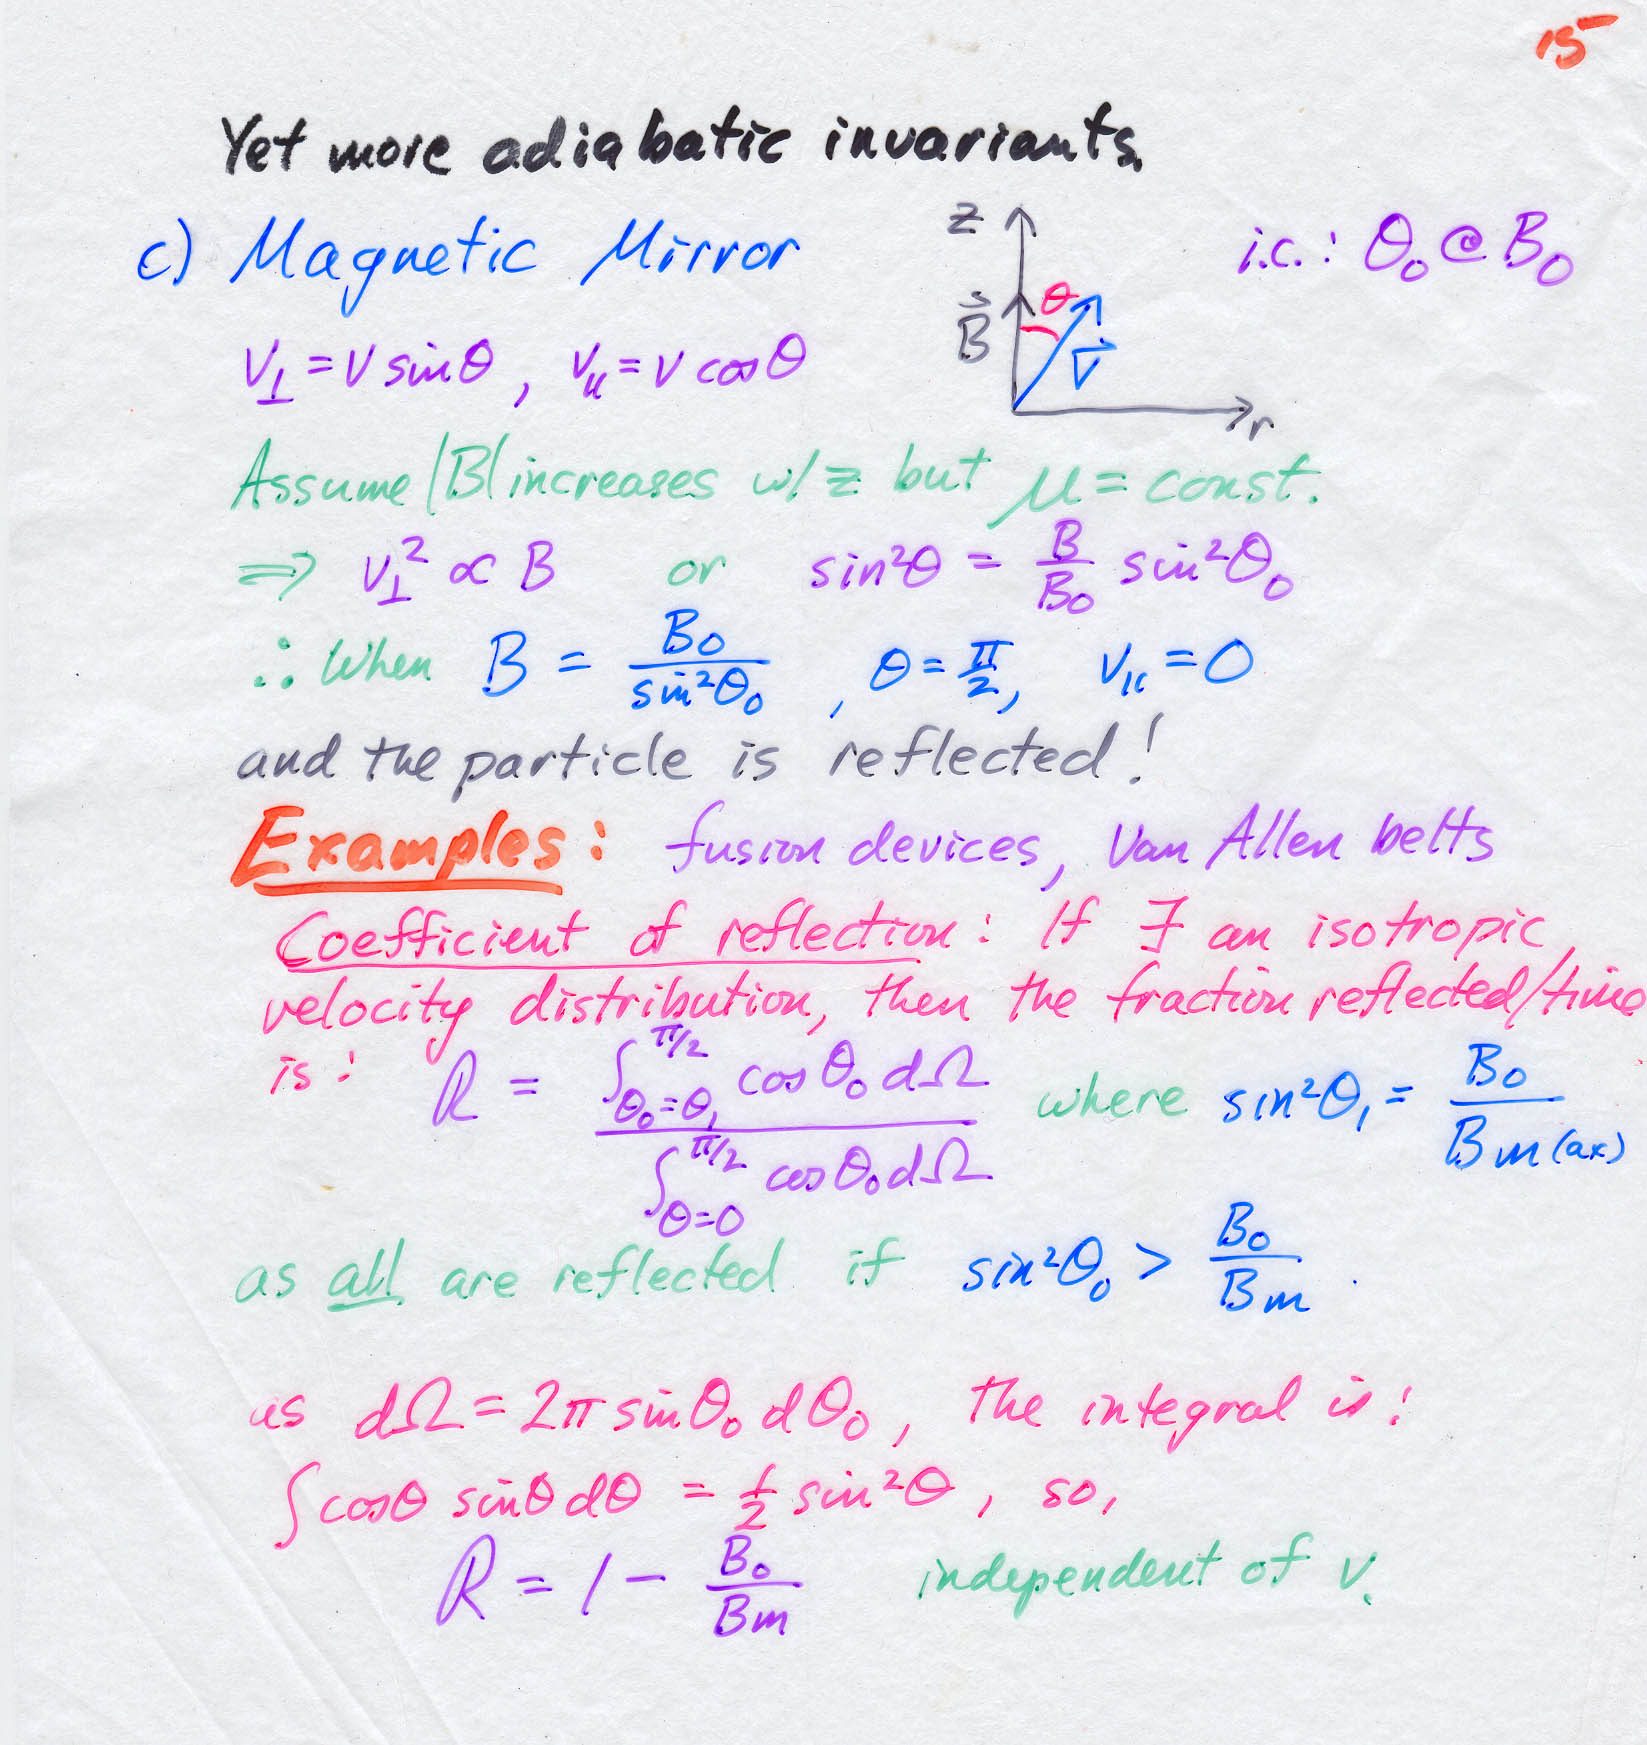 15
Yet more adiabatic invariants.
c) Magnetic Mirror
z
i.c.: θ₀ @ B₀
θ
B⃗
v⃗
r
v⊥ = v sinθ , v∥ = v cosθ
Assume |B| increases w/ z but μ = const.
⇒ v⊥² ∝ B or sin²θ = B/B₀ sin²θ₀
∴ When B = B₀/sin²θ₀ , θ = π/2, v∥ = 0
and the particle is reflected!
Examples: fusion devices, Van Allen belts
Coefficient of reflection: If ∃ an isotropic
velocity distribution, then the fraction reflected/time
is: R = ∫_{θ₀=θ₁}^{π/2} cosθ₀ dΩ / ∫_{θ=0}^{π/2} cosθ₀ dΩ where sin²θ₁ = B₀/Bm(ax)
as all are reflected if sin²θ₀ > B₀/Bm .
as dΩ = 2π sinθ₀ dθ₀, the integral is:
∫ cosθ sinθ dθ = 1/2 sin²θ , so,
R = 1 - B₀/Bm independent of v.